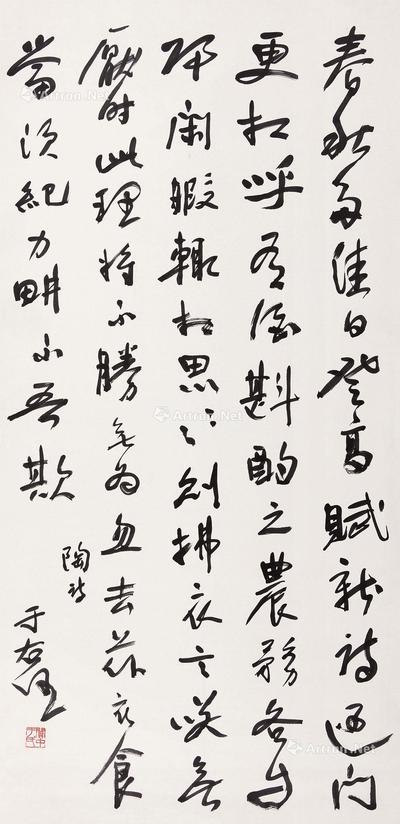 春秋多佳日登高賦新詩過門
更相呼有酒斟酌之農務各自
歸閑暇輒相思〻則拂衣言咲無
厭時此理將不勝無為忽去茲衣食
當須紀力畊不吾欺
陶詩
于右任
Artron.Net